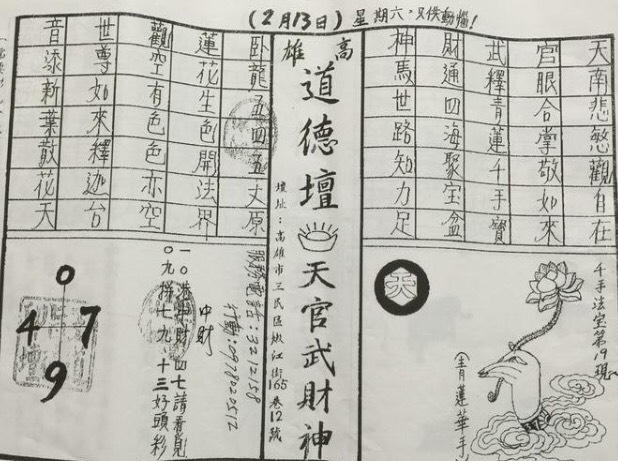 (2月13日)星期六,只供動腦!
天南悲慜觀自在
官眼合掌敬如來
武釋青蓮千手寶
財通四海聚宝盆
神馬世路知力足
高雄
道德壇
天官武財神
壇址:高雄市三民區嫩江街165巷12號
臥龍五四五丈原
蓮花生色開法界
觀空有色色亦空
世尊如來釋迦台
音添新葉散花天
千手法宝第19現
青蓮華手
天
服務電話:3212158
行動:0978020512
中財
一〇港中財四七請看鬼
〇九拼七九、十三好頭彩
0
4 7
9